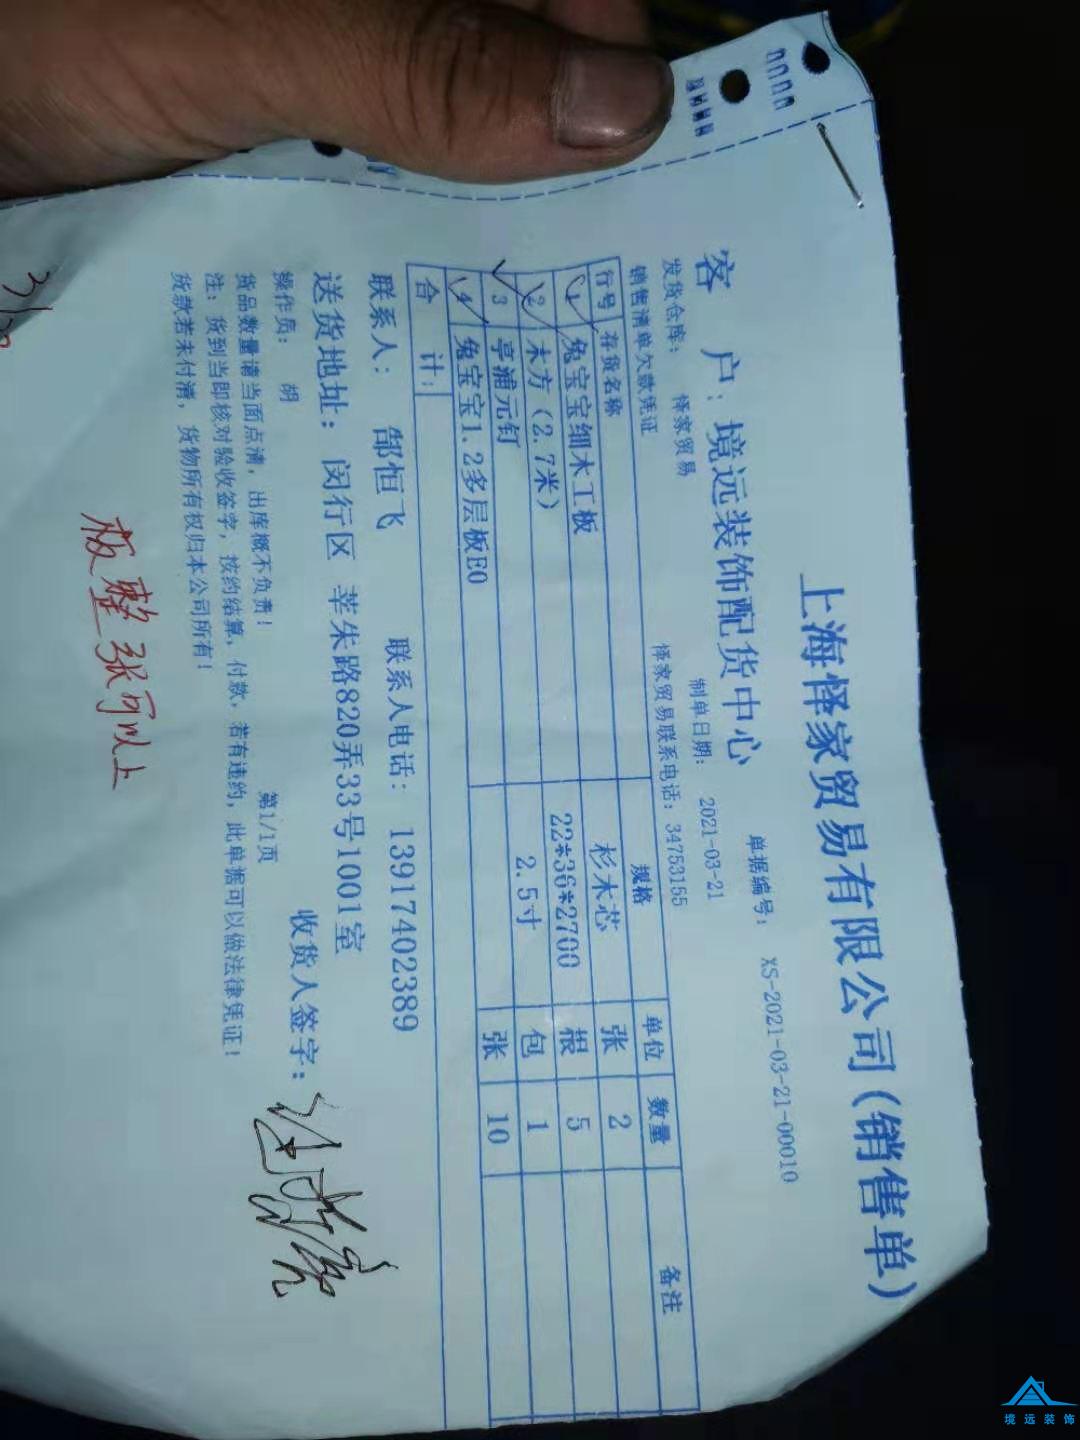 上海怿家贸易有限公司(销售单)
单据编号: XS-2021-03-21-00010
客 户: 境远装饰配货中心
制单日期: 2021-03-21
发货仓库: 怿家贸易
怿家贸易联系电话: 34753155
销售清单欠款凭证
行号 存货名称 规格 单位 数量 备注
1 兔宝宝细木工板 杉木芯 张 2
2 木方(2.7米) 22*36*2700 根 5
3 亭浦元钉 2.5寸 包 1
4 兔宝宝1.2多层板E0 张 10
合 计:
联系人: 郜恒飞 联系人电话: 13917402389
送货地址: 闵行区 莘朱路820弄33号1001室
操作员: 胡 收货人签字:
第1/1页
货品数量请当面点清, 出库概不负责!
注: 货到当即核对验收签字, 按约结算、付款, 若有违约, 此单据可以做法律凭证!
货款若未付清, 货物所有权归本公司所有!
板整张可以上
境远装饰